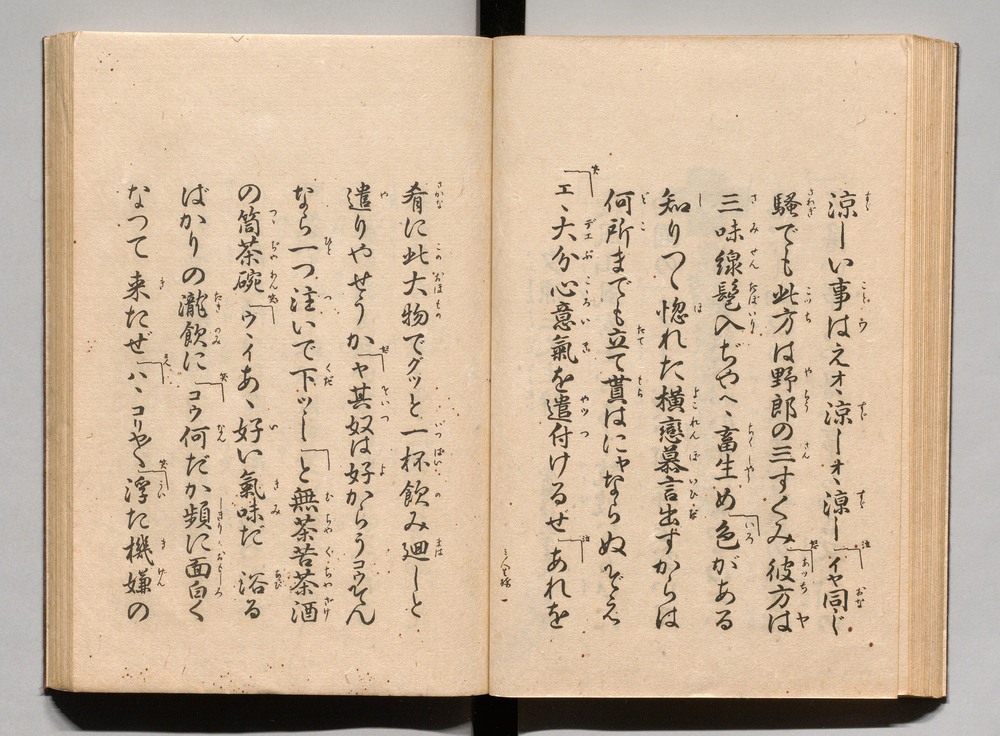 涼しい事はえオヽ涼しオヽ涼し「イヤ同じ
騒でも此方は野郎の三すくみ「彼方は
三味線髱入ぢやへ畜生め「色がある
知りつゝ惚れた横戀慕言出すからは
何所までも立て貰はにやならぬぞえ
「エヽ大分心意氣を遣付けるぜ「あれを
肴に此大物でグッと一杯飲み廻しと
遣りやせうか「ヤ其奴は好からうコウ
なら一つ注いで下ッし「と無茶苦茶酒
の筒茶碗「ウヽイあヽ好い氣味だ 浴る
ばかりの瀧飲に「コウ何だか頻に面白く
なつて 来たぜ「ハヽコリや「浮た機嫌の